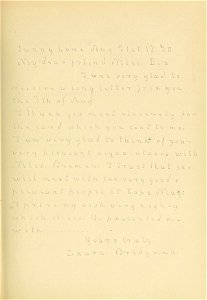 Sunny home Aug 21st 12.30.
My dear friend Miss. Eva
I was very glad to
receive a long letter from you
the 7th of Aug
I thank you most sincerely for
the card which you sent to me
I am very glad to think of your
very pleasant acquaintance with
Miss I trust that she
will meet with the very good &
pleasant people at Cape May
I prize my book very highly
which Miss. presented me
with
Yours truly
Laura Bridgman.